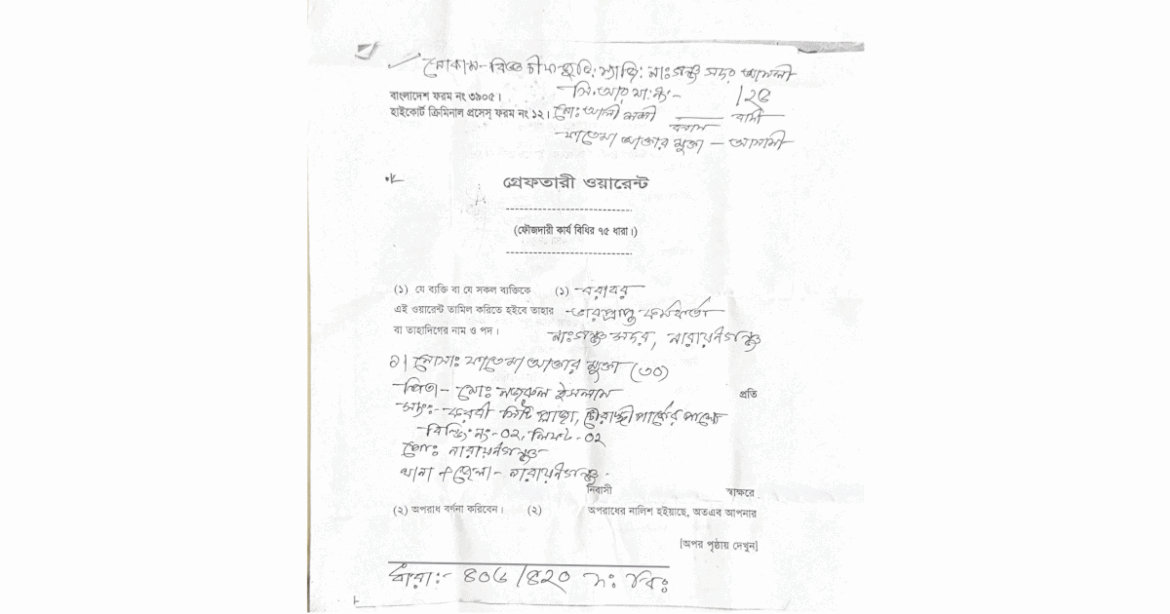 মোকাম- বিজ্ঞ চীফ জুডি: ম্যাজি: নাঃগঞ্জ সদর আমলী
সি.আর মা:নং- /২৪
বাংলাদেশ ফরম নং ৩৯০৫।
হাইকোর্ট ক্রিমিনাল প্রসেস্ ফরম নং ১২। মো: আলী বাদী
বনাম
ফাতেমা আক্তার মুক্তা – আসামী
গ্রেফতারী ওয়ারেন্ট
(ফৌজদারী কার্য বিধির ৭৫ ধারা।)
(১) যে ব্যক্তি বা যে সকল ব্যক্তিকে (১) বরাবর
এই ওয়ারেন্ট তামিল করিতে হইবে তাহার ভারপ্রাপ্ত কর্মকর্তা
বা তাহাদিগের নাম ও পদ। নাঃগঞ্জ সদর, নারায়নগঞ্জ
১। মোসাঃ ফাতেমা আক্তার মুক্তা (৩০)
পিতা- মোঃ নজরুল ইসলাম
প্রতি
সাং:- করবী সিটি প্লাজা, চৌরাঙ্গী পার্কের পাশে
বিল্ডিং নং-০২, লিফট-০২
পো: নারায়নগঞ্জ
থানা + জেলা- নারায়নগঞ্জ
নিবাসী স্বাক্ষরে
(২) অপরাধ বর্ণনা করিবেন। (২) অপরাধের নালিশ হইয়াছে, অতএব আপনার
[অপর পৃষ্ঠায় দেখুন]
ধারা:- ৪০৬/৪২০ দ: বি: